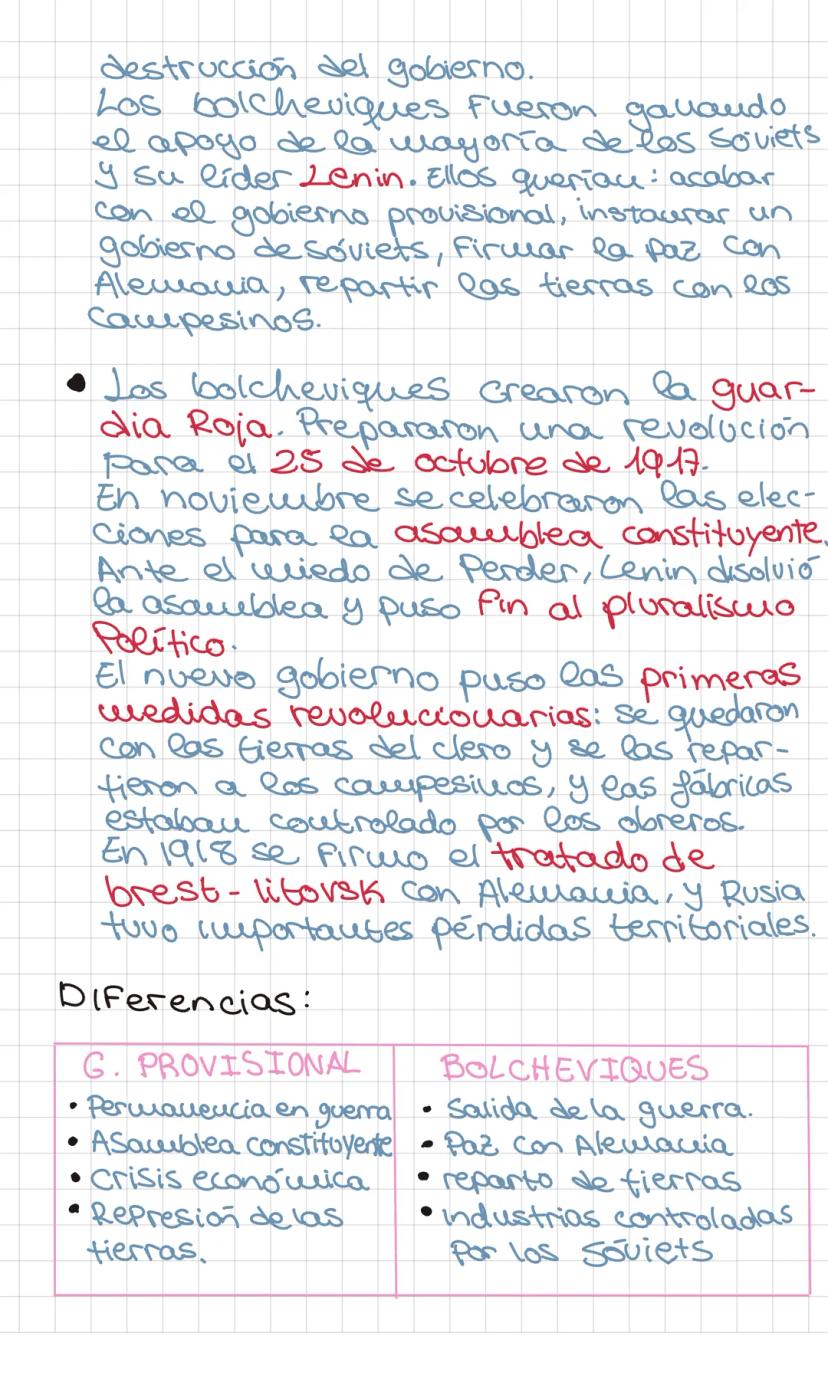 destrucción del gobierno.
Los bolcheviques fueron ganando
el apoyo de la mayoría de los sóviets
y su líder Lenin. Ellos querían: acabar
con el gobierno provisional, instaurar un
gobierno de sóviets, firmar la paz con
Alemania, repartir las tierras con los
campesinos.
• Los bolcheviques crearon la guar-
dia Roja. Prepararon una revolución
para el 25 de octubre de 1917.
En noviembre se celebraron las elec-
ciones para la asamblea constituyente.
Ante el miedo de Perder, Lenin disolvió
la asamblea y puso fin al pluralismo
Político.
El nuevo gobierno puso las primeras
medidas revolucionarias: se quedaron
con las tierras del clero y se las repar-
tieron a los campesinos, y las fábricas
estaban controlado por los obreros.
En 1918 se firmo el tratado de
brest-litovsk con Alemania, y Rusia
tuvo importantes pérdidas territoriales.
Diferencias:
G. PROVISIONAL
• Permanencia en guerra
• Asamblea constituyente
• Crisis económica
• Represión de las
tierras.
BOLCHEVIQUES
• Salida de la guerra.
• Paz con Alemania
• reparto de tierras
• industrias controladas
por los sóviets